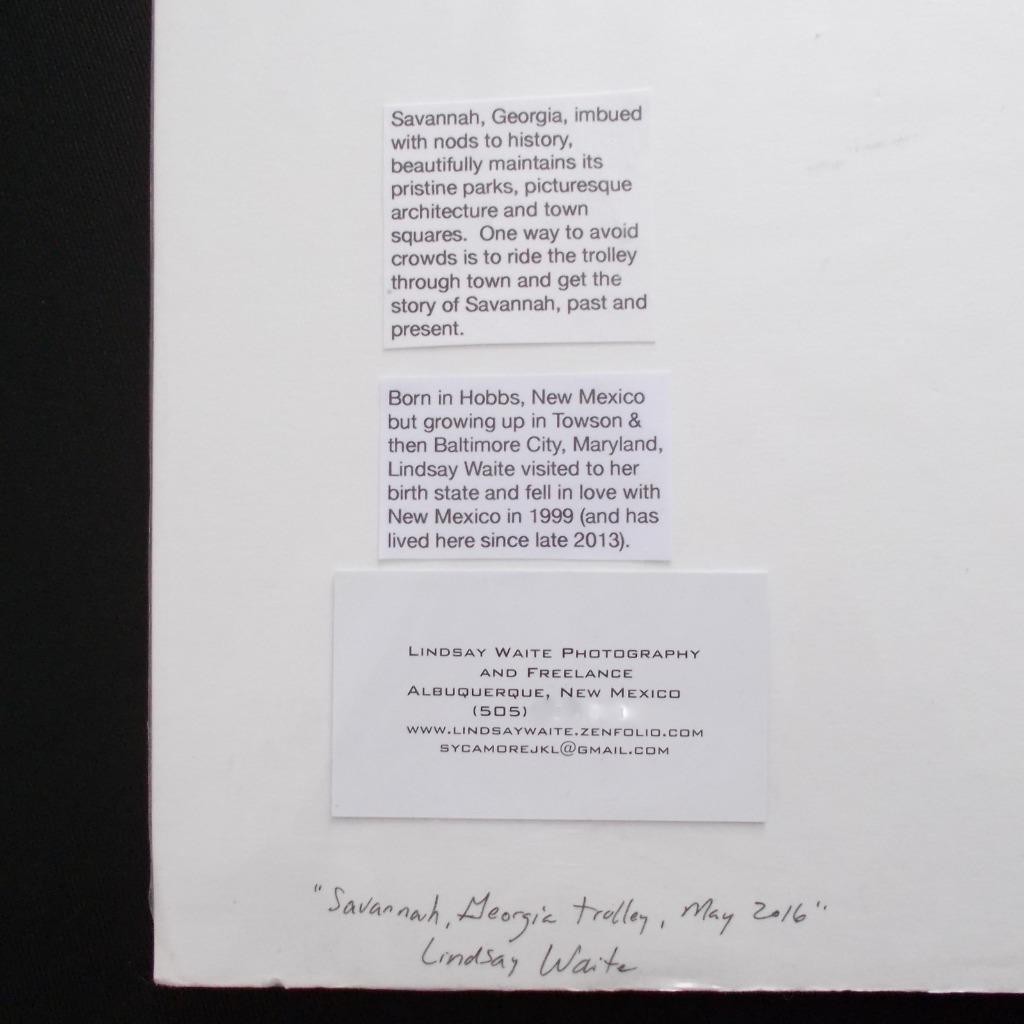 Savannah, Georgia, imbued
with nods to history,
beautifully maintains its
pristine parks, picturesque
architecture and town
squares.  One way to avoid
crowds is to ride the trolley
through town and get the
story of Savannah, past and
present.
Born in Hobbs, New Mexico
but growing up in Towson &
then Baltimore City, Maryland,
Lindsay Waite visited to her
birth state and fell in love with
New Mexico in 1999 (and has
lived here since late 2013).
LINDSAY WAITE PHOTOGRAPHY
AND FREELANCE
ALBUQUERQUE, NEW MEXICO
(505)
WWW.LINDSAYWAITE.ZENFOLIO.COM
SYCAMOREJKL@GMAIL.COM
"Savannah, Georgia trolley, May 2016"
Lindsay Waite